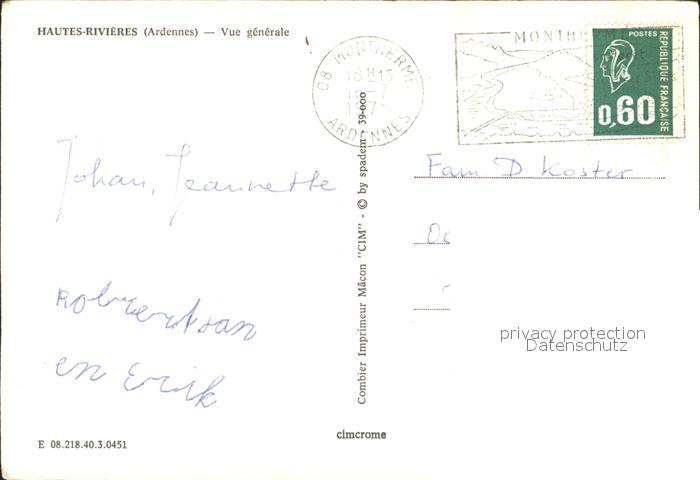 HAUTES-RIVIÈRES (Ardennes) — Vue générale
08 MONTHERME
18 H 15
ARDENNES
MONTHE
POSTES
RÉPUBLIQUE FRANÇAISE
0,60
Johan, Jeannette
Robbertjan
en Erik
Combier Imprimeur Mâcon "CIM" - © by spadem 39-000
Fam D Koster
privacy protection
Datenschutz
cimcrome
E 08.218.40.3.0451